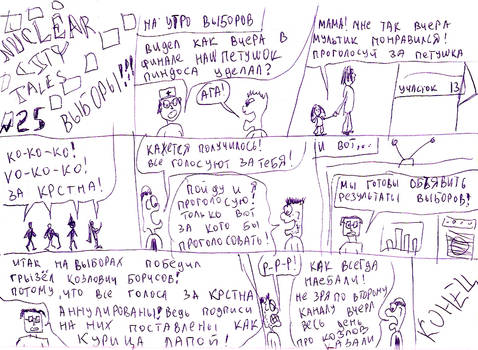 NUCLEAR
CITY
TALES
№25
ВЫБОРЫ!!!
НА УТРО ВЫБОРОВ
ВИДЕЛ КАК ВЧЕРА В
ФИНАЛЕ НАШ ПЕТУШОК
ПИНДОСА УДЕЛАЛ?
АГА!
МАМА! МНЕ ТАК ВЧЕРА
МУЛЬТИК ПОНРАВИЛСЯ!
ПРОГОЛОСУЙ ЗА ПЕТУШКА
УЧАСТОК 13
КО-КО-КО!
КО-КО-КО!
ЗА КРСТНА!
КАЖЕТСЯ ПОЛУЧИЛОСЬ!
ВСЕ ГОЛОСУЮТ ЗА ТЕБЯ!
ПОЙДУ И Я
ПРОГОЛОСУЮ!
ТОЛЬКО ВОТ
ЗА КОГО БЫ
ПРОГОЛОСОВАТЬ!
И ВОТ,...
МЫ ГОТОВЫ ОБЪЯВИТЬ
РЕЗУЛЬТАТЫ ВЫБОРОВ!
ИТАК НА ВЫБОРАХ ПОБЕДИЛ
ГРЫЗЁЛ КОЗЛОВИЧ БОРИСОВ!
ПОТОМУ, ЧТО ВСЕ ГОЛОСА ЗА КРСТНА
АННУЛИРОВАНЫ! ВЕДЬ ПОДПИСИ
НА НИХ ПОСТАВЛЕНЫ КАК
КУРИЦА ЛАПОЙ!
Р-Р-Р!
КАК ВСЕГДА
НАЕБАЛИ!
НЕ ЗРЯ ПО ВТОРОМУ
КАНАЛУ ВЧЕРА
ВЕСЬ ДЕНЬ
ПРО КОЗЛОВ
КАЗАЛИ
КОНЕЦ